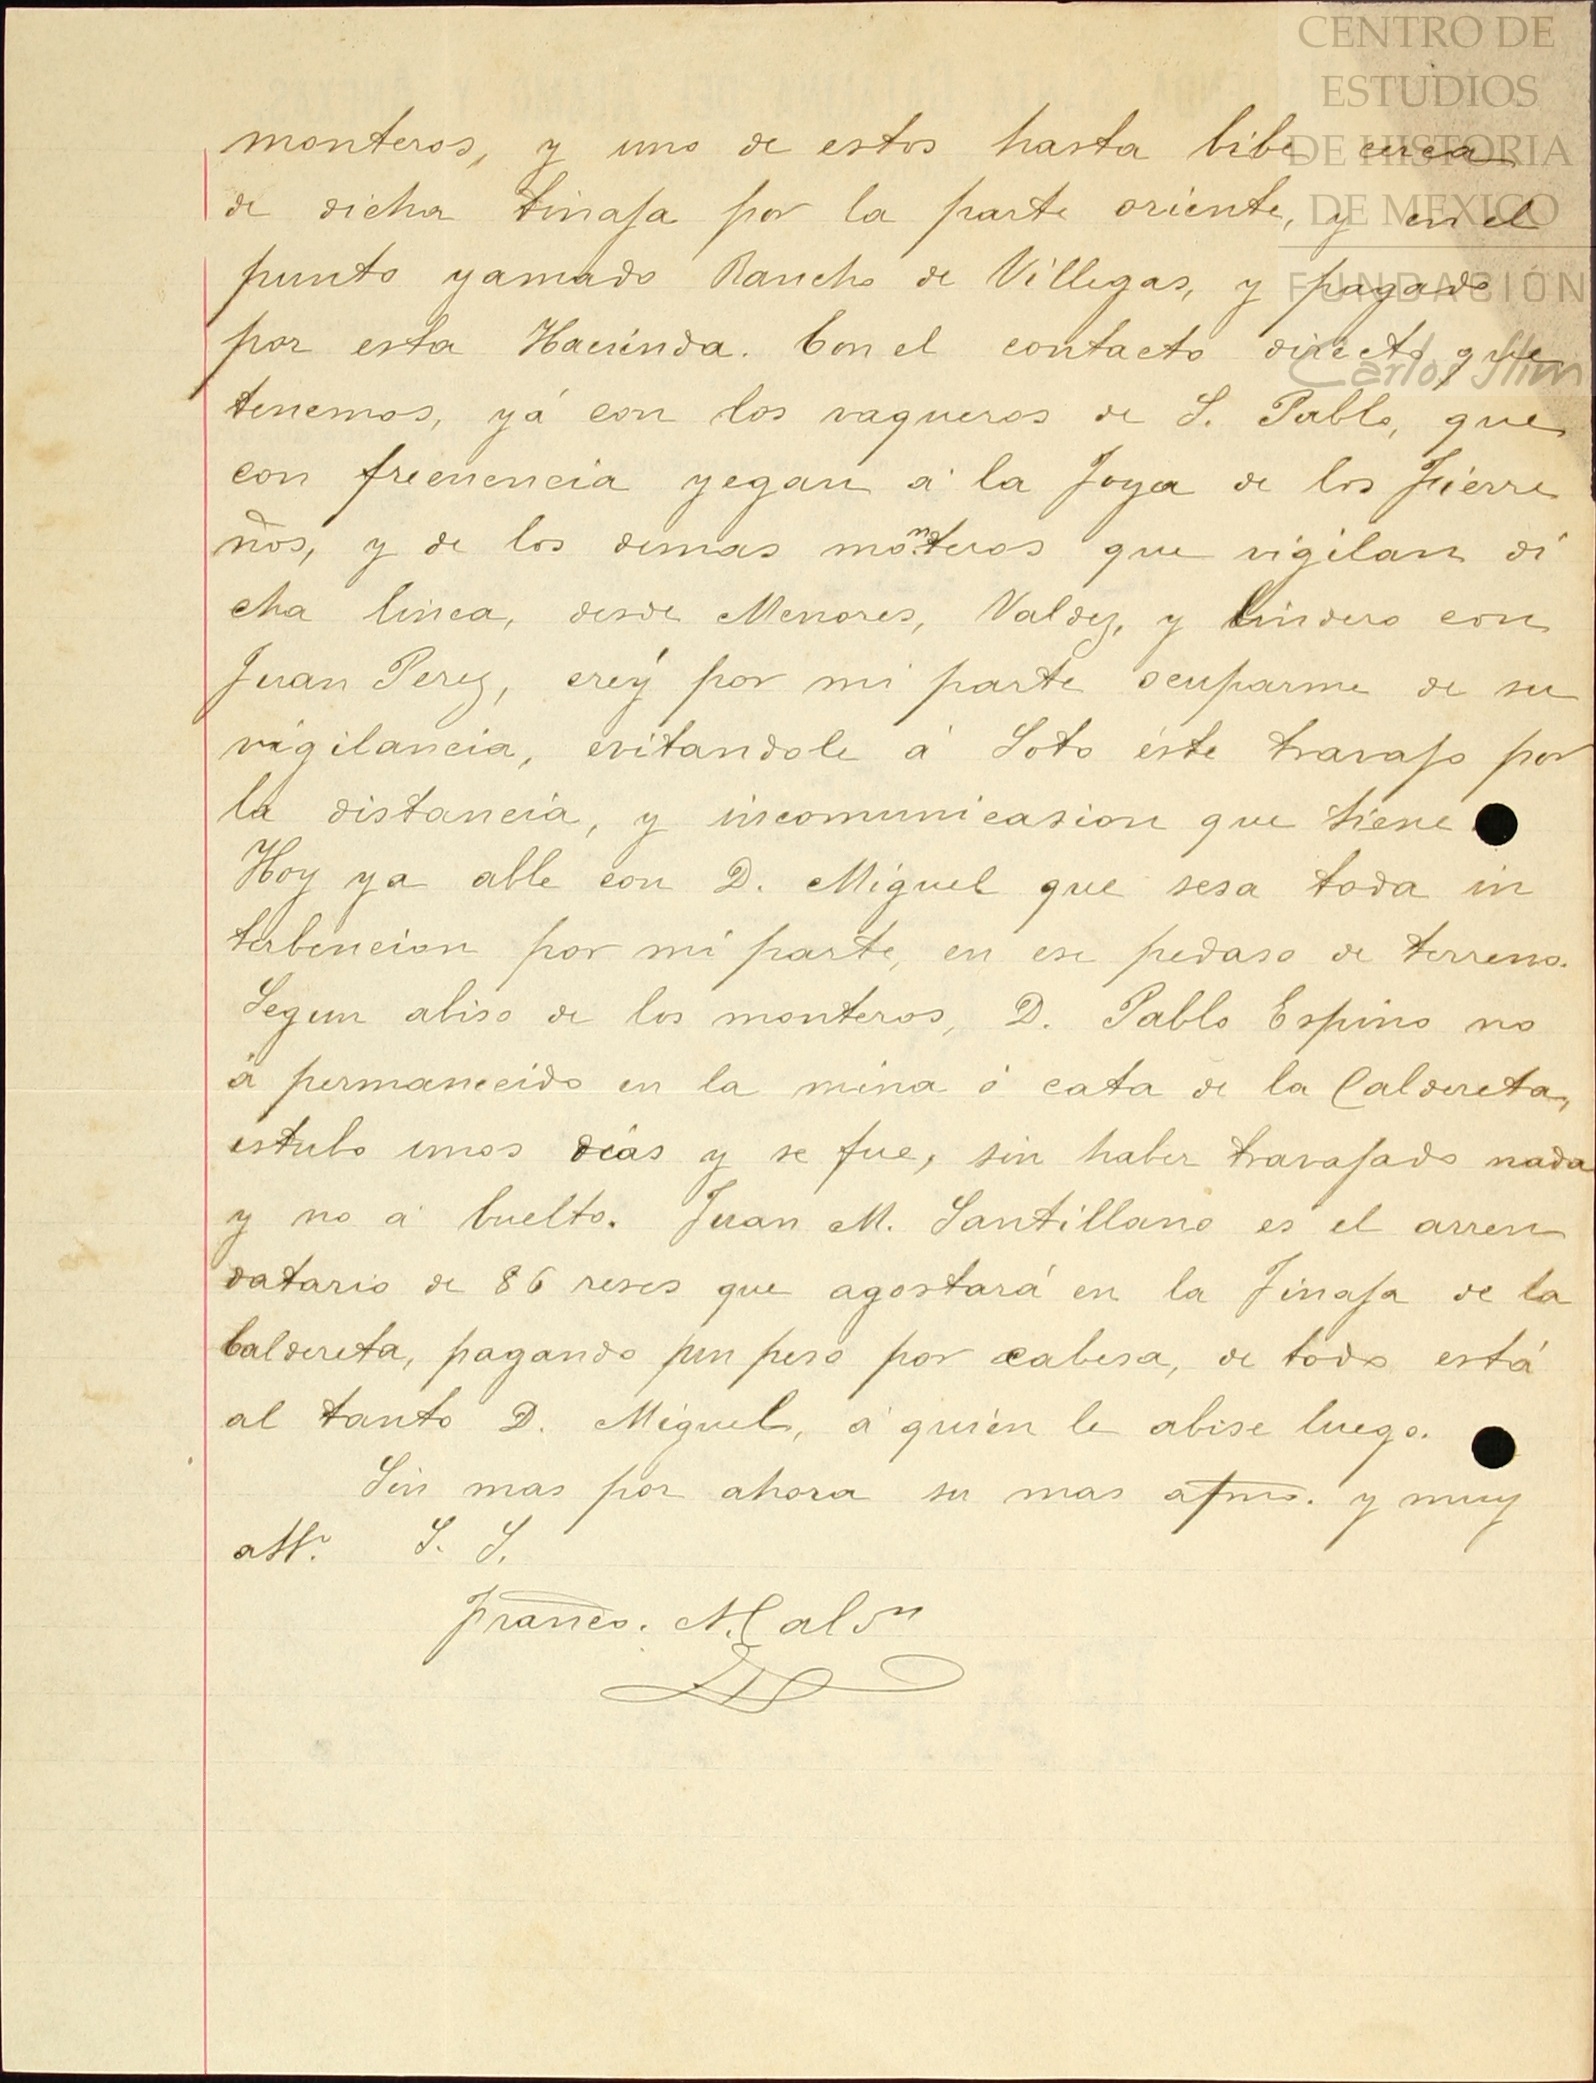 CENTRO DE
ESTUDIOS
DE HISTORIA
DE MEXICO
FUNDACIÓN
Carlos Slim
monteros, y uno de estos hasta bibe cerca
de dicha tinaja por la parte oriente, y en el
punto yamado Rancho de Villegas, y pagado
por esta Hacienda. Con el contacto directo que
tenemos, yá con los vaqueros de S. Pablo, que
con frecuencia yegan á la Joya de los Fierre
ños, y de los demas monteros que vigilan di
cha linea, desde Menores, Valdez, y lindero con
Juan Perez, creý por mi parte ocuparme de su
vigilancia, evitandole á Soto éste travajo por
la distancia, y incomunicasion que tiene.
Hoy ya able con D. Miguel que sesa toda in
terbencion por mi parte, en ese pedaso de terreno.
Segun abiso de los monteros, D. Pablo Espino no
á permanecido en la mina ó cata de la Caldereta,
estubo unos dias y se fue, sin haber travajado nada
y no á buelto. Juan M. Santillano es el arren
datario de 86 reses que agostará en la Tinaja de la
Caldereta, pagando un peso por cabesa, de todo está
al tanto D. Miguel, á quién le abise luego.
Sin mas por ahora su mas afmo. y muy
att. S. S.
Franco. N. Cal